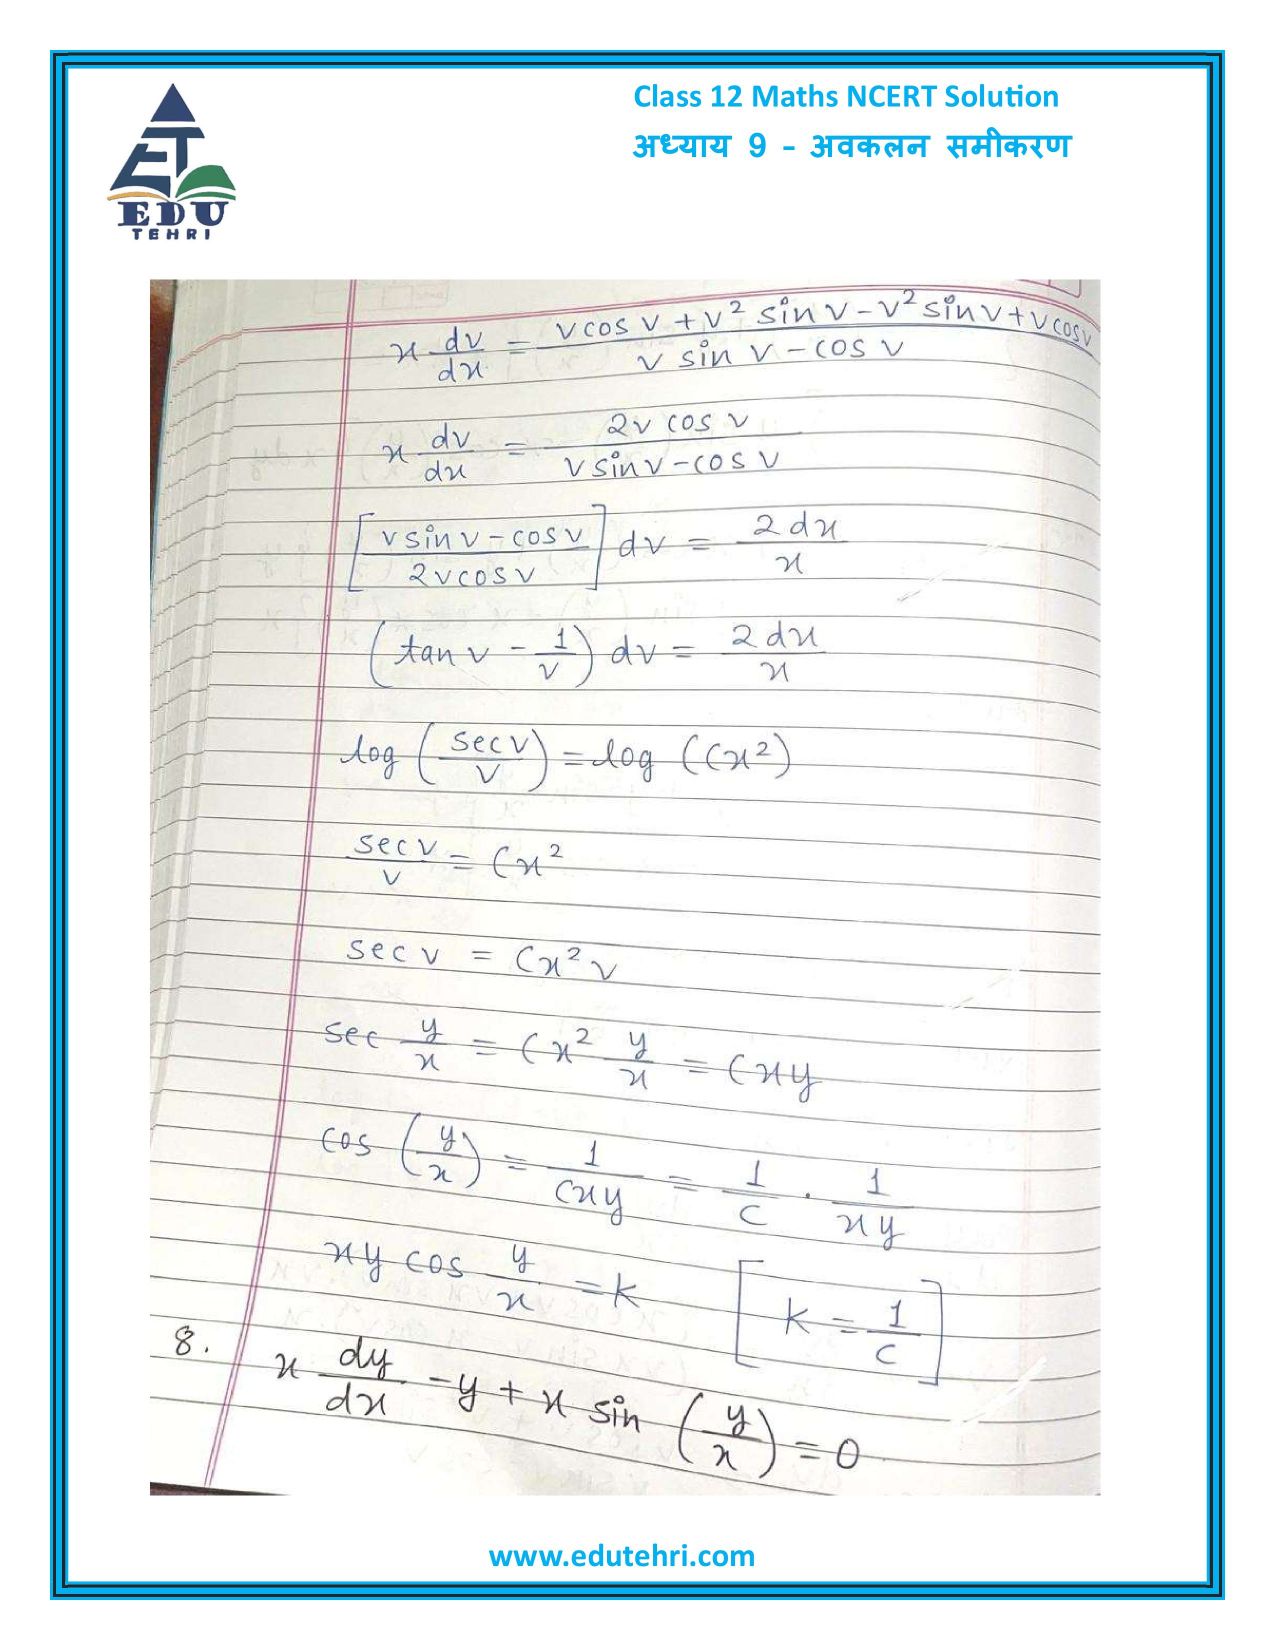 Class 12 Maths NCERT Solution
अध्याय 9 – अवकलन समीकरण
EDU
TEHRI
x dv/dx = (v cos v + v² sin v − v² sin v + v cos v)/(v sin v − cos v)
x dv/dx = 2v cos v/(v sin v − cos v)
[(v sin v − cos v)/(2v cos v)] dv = 2dx/x
(tan v − 1/v) dv = 2dx/x
log (sec v/v) = log (Cx²)
sec v/v = Cx²
sec v = Cx² v
sec y/x = Cx² y/x = Cxy
cos (y/x) = 1/Cxy = 1/C · 1/xy
xy cos y/x = k [k = 1/C]
8. x dy/dx − y + x sin (y/x) = 0
www.edutehri.com